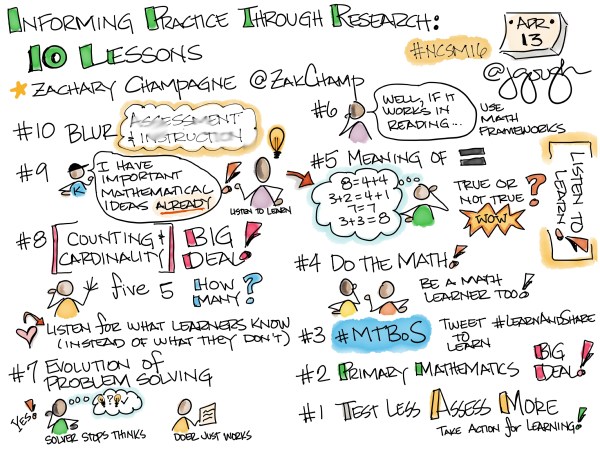 INFORMING PRACTICE THROUGH RESEARCH:
10 LESSONS
#NCSM16
APR
13
@jgough
ZACHARY CHAMPAGNE @ZAKCHAMP
#10 BLUR ASSESSMENT
+ INSTRUCTION
#9 I HAVE
IMPORTANT
MATHEMATICAL
IDEAS ALREADY!
K
LISTEN TO LEARN
#8 [COUNTING +
CARDINALITY] BIG
DEAL!
five 5 HOW
MANY?
LISTEN FOR WHAT LEARNERS KNOW
(INSTEAD OF WHAT THEY DON'T)
#7 EVOLUTION OF
PROBLEM SOLVING
YES!
?
SOLVER STOPS THINKS
DOER JUST WORKS
#6 WELL, IF IT
WORKS IN
READING...
USE
MATH
FRAMEWORKS
#5 MEANING OF =
8=4+4
3+2=4+1
7=7
3+3=8
TRUE OR
NOT TRUE?
WOW
LISTEN TO
LEARN!
#4 DO THE MATH!
BE A MATH
LEARNER TOO!
#3 #MTBoS TWEET #LEARNANDSHARE
TO
LEARN
#2 PRIMARY MATHEMATICS BIG
DEAL!
#1 TEST LESS ASSESS MORE
TAKE ACTION for LEARNING!